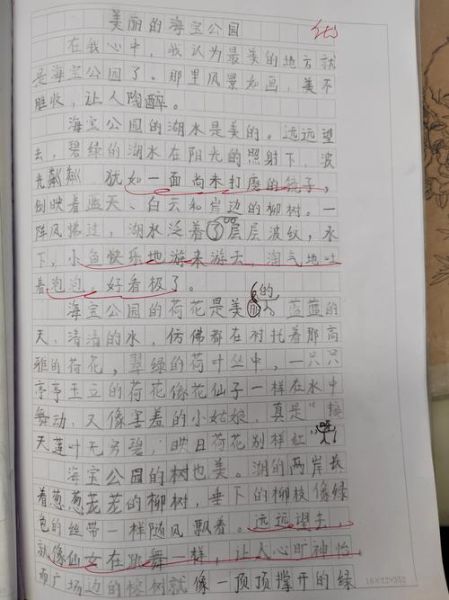 美丽的海宝公园
在我心中，我认为最美的地方就
是海宝公园了。那里风景如画，美不
胜收，让人陶醉。
海宝公园的湖水是美的。远远望
去，碧绿的湖水在阳光的照射下，波
光粼粼，犹如一面尚未打磨的镜子，
倒映着蓝天、白云和岸边的柳树。一
阵风拂过，湖水泛着了层层波纹，水
下，小鱼快乐地游来游去，淘气地吐
着泡泡，好看极了。
海宝公园的荷花是美的。蓝蓝的
天，清清的水，仿佛都在衬托着那高
雅的荷花，翠绿的荷叶丛中，一只只
亭亭玉立的荷花像花仙子一样在水中
舞动，又像害羞的小姑娘，真是“接
天莲叶无穷碧，映日荷花别样红”
海宝公园的树也美。湖的两岸长
着葱葱茏茏的柳树，垂下的柳枝像绿
色的丝带一样随风飘着。远远望去，
就像仙女在跳舞一样，让人心旷神怡
而广场边的松树就像一顶顶撑开的绿